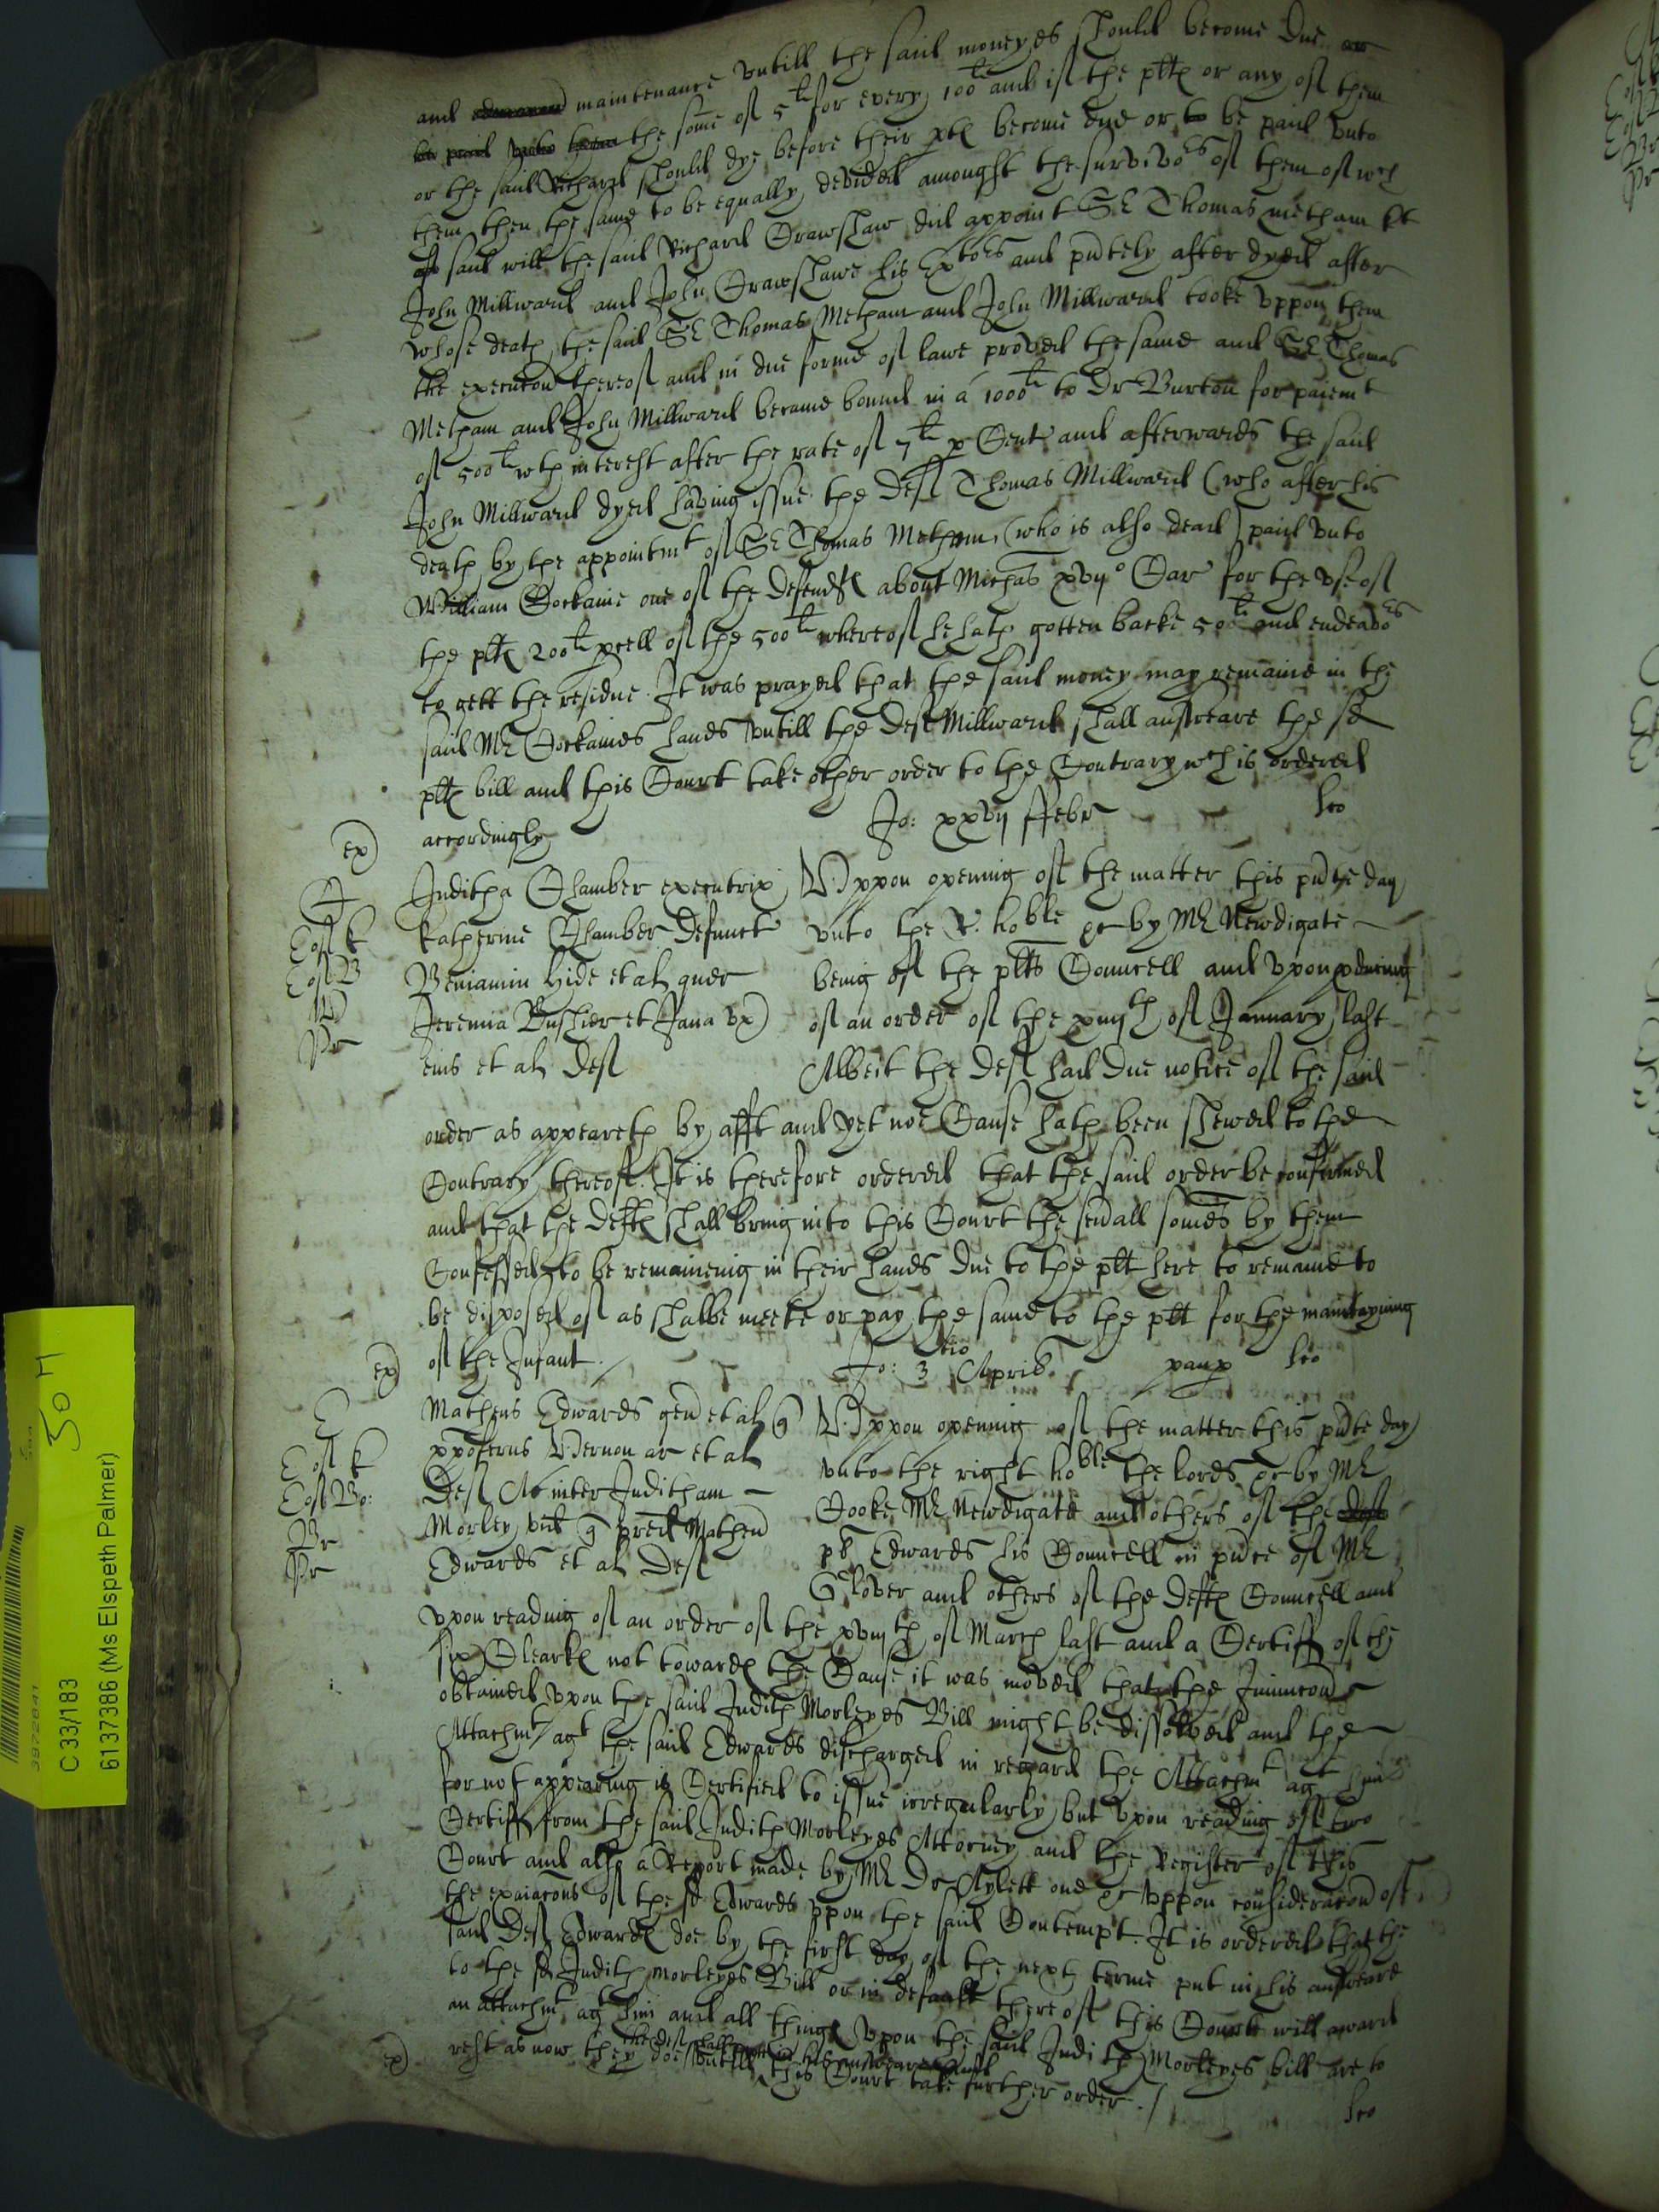 and maintenance vntill the said moneyes should become due
the some of 5li for every 100li and if the pltes or any of them
or the said Richard should dye before their ptes become due or to be paid vnto
them then the same to be equally devided amonght the survivors of them of wch
said will the said Richard Crawshaw did appoint Sr Thomas Metham kt
John Millward and John Crawshawe his Exectors and pntely after dyed after
whose death the said Sr Thomas Metham and John Millward tooke vppon them
the execucon thereof and in due forme of lawe proved the same and Sr Thomas
Metham and John Millward became bound in a 1000li to Dr Burton for paiemt
of 500li wth interest after the rate of 7li p Cent and afterwards the said
John Millward dyed having issue the Deft Thomas Millward (who after his
death by the appointmt of Sr Thomas Metham, (who is also dead) paid vnto
William Cockaine one of the defendtes about Michas xvijo Car for the vse of
the pltes 200li pcell of the 500li whereof he hath gotten backe 50li and endeavors
to gett the residue. It was prayed that the said money may remaine in the
said Mr Cockaines hands vntill the Deft Millward shall answeare the sd
pltes bill and this Court take other order to the Contrary wch is ordered
accordingly
Jo: xxvij ffebr
ex)
C
Juditha Chamber executrix
Katherine Chamber defunct
Beniamin Hide et al quer
Jeremia Bushier et Jana vx)
eius et al Deft
Vppon opening of the matter this pnte day
vnto the r. hoble &c by Mr Newdigate
being of the plts Councell and vpon pducing
of an order of the xiijth of January last
Albeit the Deft had due notice of the said
order as appeareth by afft and yet noe Cause hath been shewed to the
Contrary thereof. It is therefore ordered that the said order be confirmed
and that the deftes shall bring into this Court the seuall somes by them
Confessed to be remaineing in their hands due to the plt here to remaine to
be disposed of as shalbe meete or pay the same to the plt for the mantayning
of the Infant.
Jo: 3tio Aprilis
paup
ex)
E
Matheus Edwards gen et al q
xpoferus Vernon ar et al
Deft Ac inter Juditham
Morley vid q pred Matheu
Edwards et al Deft
Vppon opening of the matter this pnte day
vnto the right hoble the lords &c by Mr
Cooke Mr Newdigate and others of the
plt Edwards his Councell in pnce of Mr
Glover and others of the Deftes Councell and
vpon reading of an order of the xviijth of March last and a Certiff of the
six Clearkes not towardes the Cause it was moved that the Iniuncon
obtained vpon the said Judith Morleyes Bill might be dissolved and the
Attachmt agt the said Edwards discharged in regard the Attachmt agt him
for not appearing is Certified to issue irregularly but vpon reading of two
Certiff from the said Judith Morleyes Attorney and the Register of this
Court and also a Report made by Mr Dr Aylett one &c vppon consideracon of
the exaiacons of the sd Edwards vpon the said Contempt. It is ordered that the
said Deft Edwardes doe by the first day of the next terme put in his answeare
to the sd Judith Morleyes Bill or in default thereof this Court will award
an attachmt agt him and all thinges vpon the said Judith Morleyes bill are to
rest as now they doe vntill the deft shall putt in his answeare and
this Court take further order./
ex)
C 33/183
6137386 (Ms Elspeth Palmer)